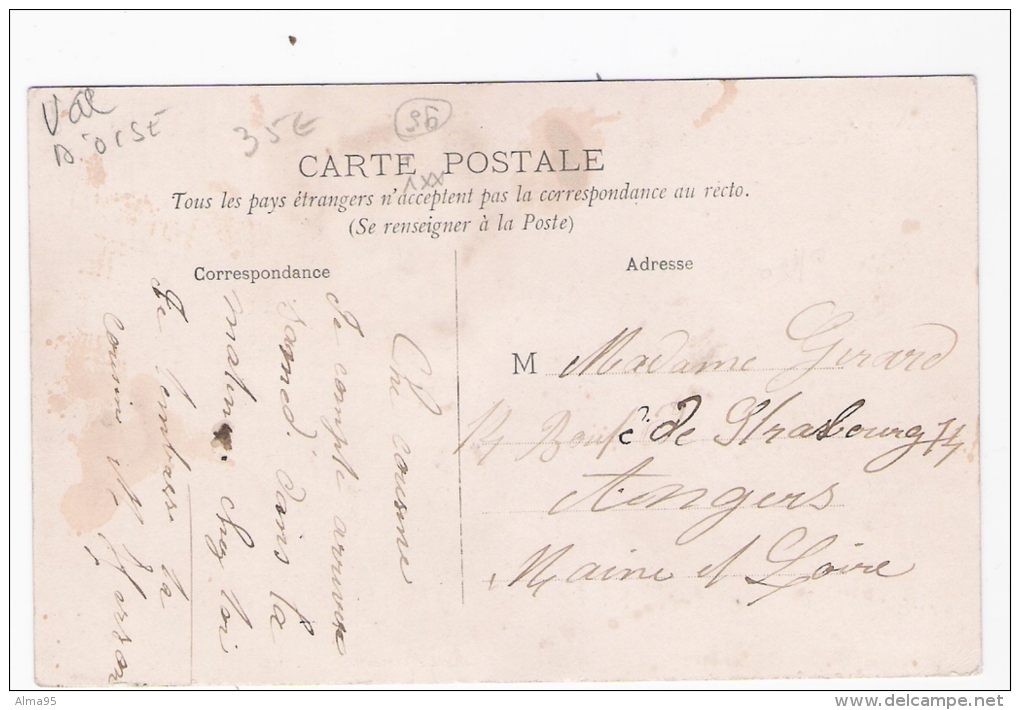 Val
D'OISE
35E
95
1xx
CARTE POSTALE
Tous les pays étrangers n'acceptent pas la correspondance au recto.
(Se renseigner à la Poste)
Correspondance
Adresse
Che cousine
Je compte arriver
samedi dans la
matiné. chez toi
Je t'embrasse ta
cousin
M Madame Girard
de Strasbourg
Angers
Maine et Loire
Alma95
www.delcampe.net